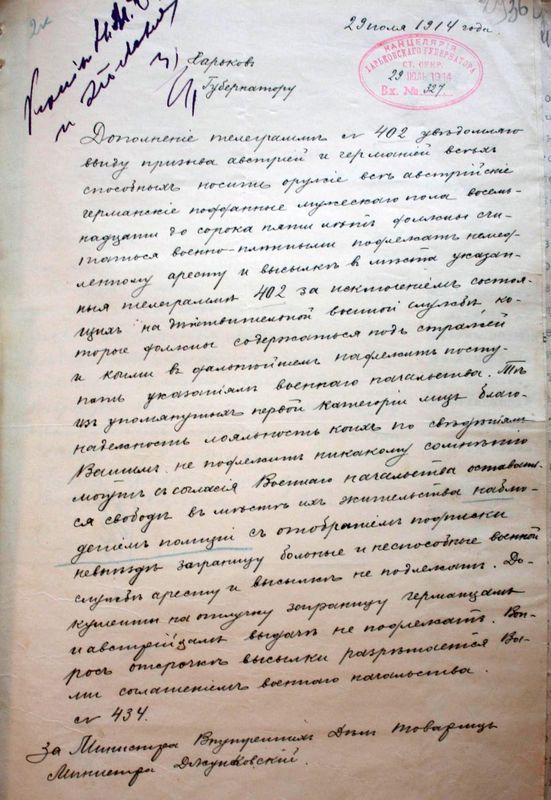 29 июля 1914 года.
КАНЦЕЛЯРІЯ
ХАРЬКОВСКАГО ГУБЕРНАТОРА
29 ІЮЛЬ 1914
Вх. № 327
Харьков
Губернатору
Дополненіе телеграммѣ № 402 увѣдомляю
ввиду призыва австріей и германіей всѣхъ
способныхъ носить оружіе всѣ австрійскіе
германскіе подданные мужескаго пола восемь-
надцати до сорока пяти лѣтъ должны счи-
таться военно-плѣнными подлежатъ немед-
ленному аресту и высылкѣ в мѣста указан-
ныя телеграммѣ 402 за исключеніемъ состоя-
щихъ на дѣйствительной военной службѣ, ко-
торые должны содержаться подъ стражей
и коими в дальнѣйшемъ надлежитъ посту-
пать указаніямъ военнаго начальства. Тѣ
изъ упомянутыхъ первой категоріи лицъ благо-
надежность лояльность коихъ по свѣдѣніямъ
Вашимъ не подлежитъ никакому сомнѣнію
могутъ съ согласія Военнаго начальства оставать-
ся свободѣ в мѣстѣ ихъ жительства наблю-
деніемъ полиціи съ отобраніемъ подписки
невыѣздѣ заграницу больные и неспособные военной
службѣ аресту и высылкѣ не подлежатъ. До-
кументы на отлучку заграницу германцамъ
и австрійцамъ выдачѣ не подлежатъ. Воп-
росъ отсрочкѣ высылки разрѣшается Ва-
ми соглашеніемъ военнаго начальства.
№ 434.
За Министра Внутреннихъ Дѣлъ Товарищъ
Министра Джунковскій.